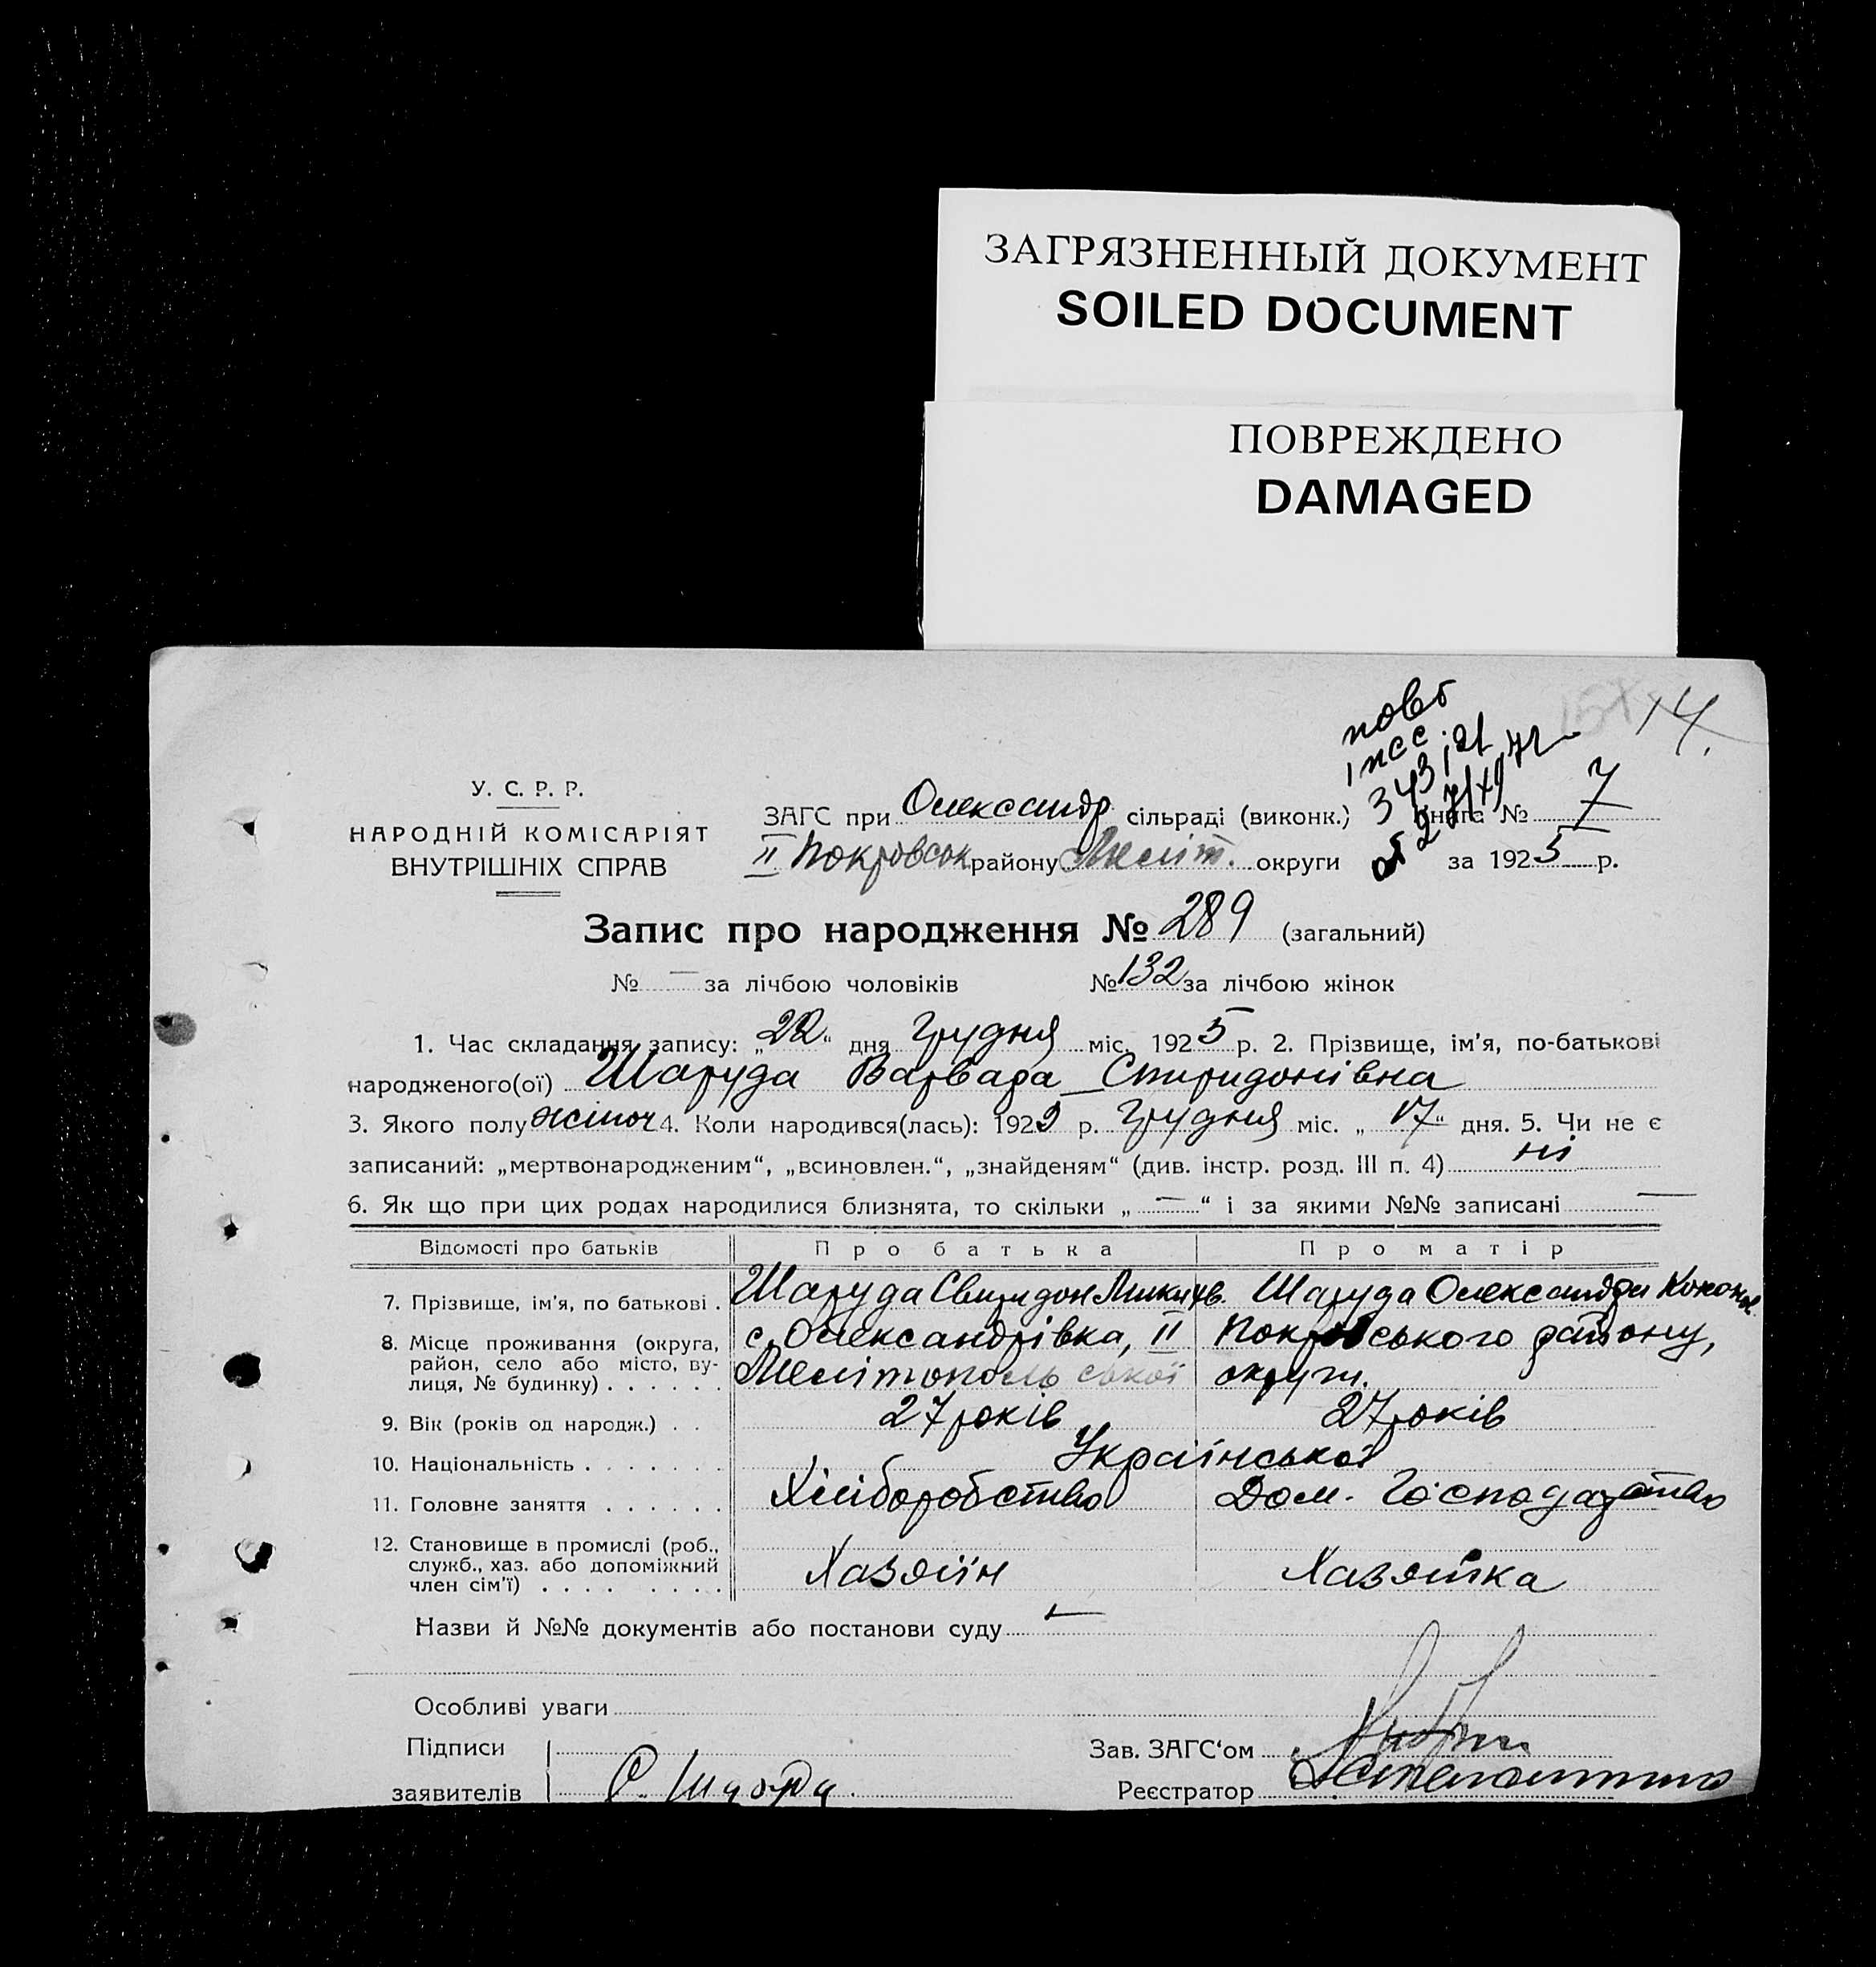 ЗАГРЯЗНЕННЫЙ ДОКУМЕНТ
SOILED DOCUMENT
ПОВРЕЖДЕНО
DAMAGED
14.
повт
343121
от 27/XII 72
У. С. Р. Р.
НАРОДНІЙ КОМІСАРІЯТ
ВНУТРІШНІХ СПРАВ
ЗАГС при Олександр сільраді (виконк.) Книга № 7
II Покровськ району Меліт. округи за 1925 р.
Запис про народження № 289 (загальний)
№ — за лічбою чоловіків № 132 за лічбою жінок
1. Час складання запису: „22“ дня Грудня міс. 1925 р. 2. Прізвище, ім'я, по-батькові
народженого(ої) Шаруда Варвара Спиридонівна
3. Якого полу жіноч 4. Коли народився(лась): 192 р. Грудня міс. „17“ дня. 5. Чи не є
записаний: „мертвонародженим“, „всиновлен.“, „знайденям“ (див. інстр. розд. III п. 4) ні
6. Як що при цих родах народилися близнята, то скільки „—“ і за якими №№ записані —
Відомості про батьків Про батька Про матір
7. Прізвище, ім'я, по батькові . Шаруда Свиридон Шаруда Олександра Конон.
8. Місце проживання (округа, с. Олександрівка, II Покровського району,
район, село або місто, ву-
лиця, № будинку) . . . . . . Мелітопольської округи.
9. Вік (років од народж.) . . 27 років 27 років
10. Національність . . . . . . . Української
11. Головне заняття . . . . . . Хліборобство Дом. Господарство
12. Становище в промислі (роб.,
служб., хаз. або допоміжний Хазяїн Хазяйка
член сім'ї) . . . . . . . .
Назви й №№ документів або постанови суду —
Особливі уваги
Підписи Зав. ЗАГС‘ом
заявителів С. Шаруда Реєстратор